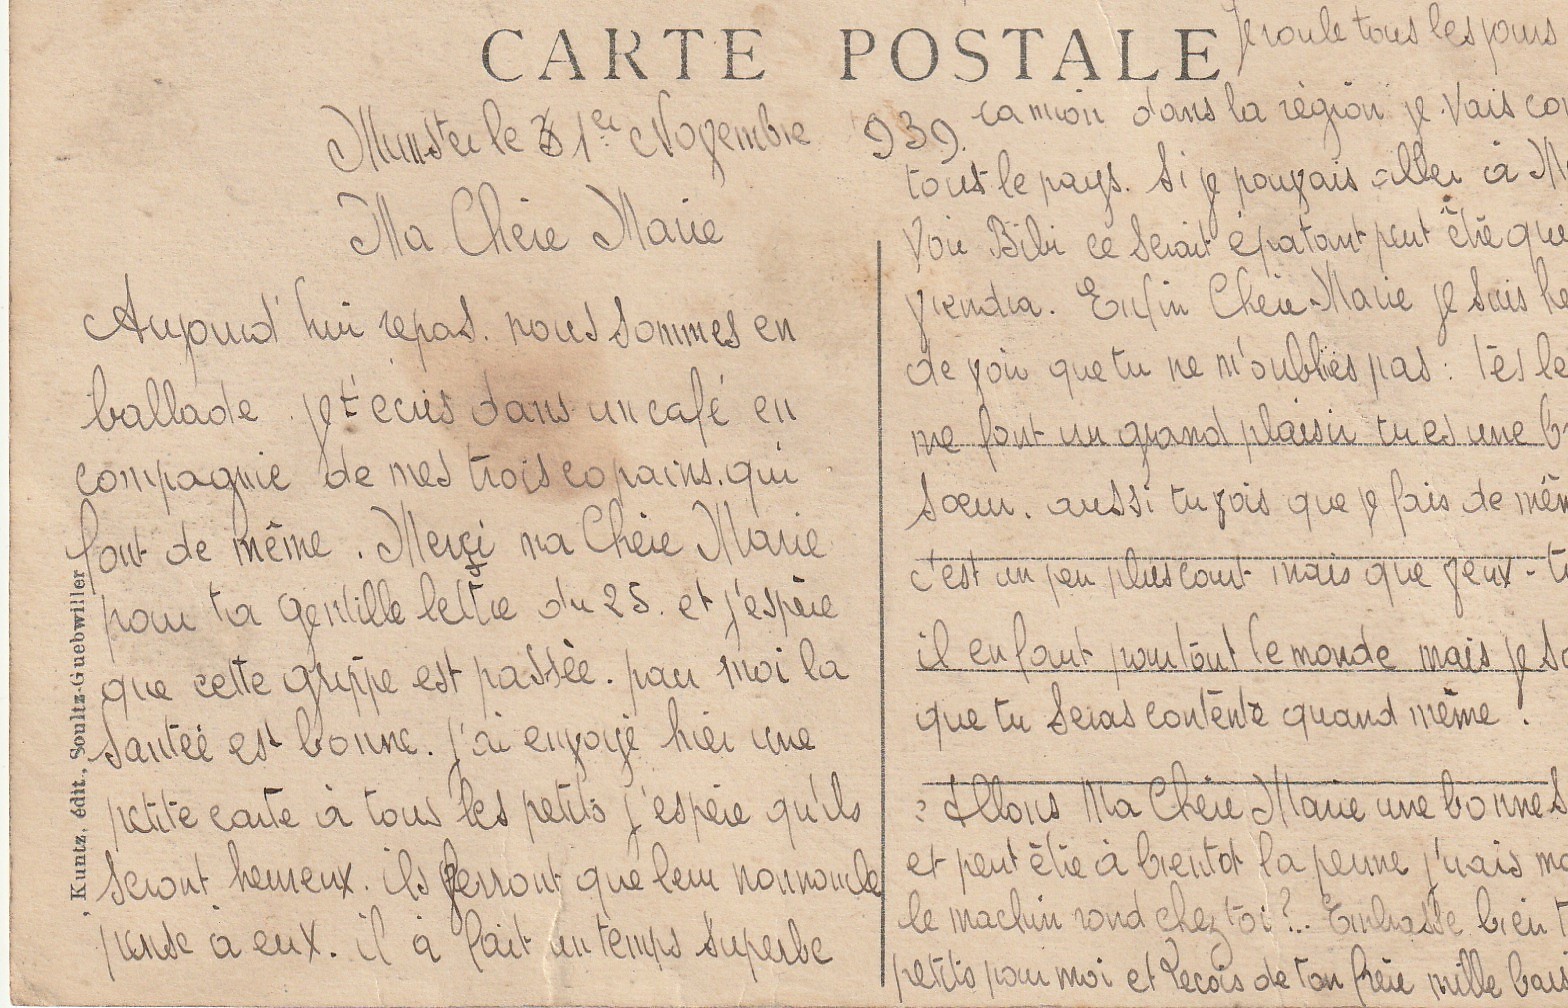 CARTE POSTALE
Munster le 1er Novembre 939.
Ma Chère Marie
Aujourd'hui repas. nous sommes en
ballade. je t'écris dans un café en
compagnie de mes trois copains. qui
font de même. Merci ma Chère Marie
pour ta gentille lettre du 25. et j'espère
que cette grippe est passée. pour moi la
santée est bonne. j'ai envoyé hier une
petite carte à tous les petits j'espère qu'ils
seront heureux. ils verront que leur nonnoncle
pense à eux. il à fait un temps superbe
Je roule tous les jours
camion dans la région je vais
tout le pays. Si je pouvais aller à
Voir Bibi ce serait épatant peut être
viendra. Enfin Chère Marie je suis
de voir que tu ne m'oublies pas. tes
me font un grand plaisir tu es une
Sœur. aussi tu vois que je fais de
c'est un peu plus court mais que veux-
il en faut pour tout le monde mais je
que tu seras contente quand même.
Allons Ma Chère Marie une bonne
et peut être à bientot la j'irais
le machin rond chez toi ?.. Embrasse bien
petits pour moi et Reçois de ton frère mille
Kuntz, édit., Soultz-Guebwiller